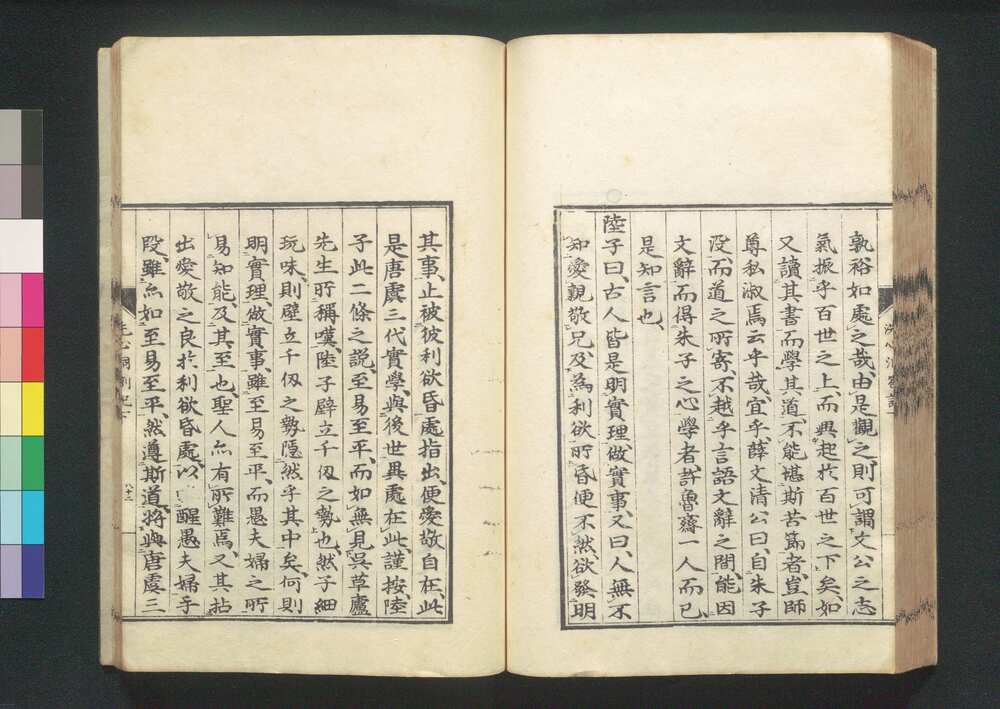 孰裕如處之哉、由是觀之則可謂文公之志
氣振乎百世之上、而興起於百世之下矣、如
又讀其書而學其道、不能堪斯苦節者、豈師
尊私淑焉云乎哉、宜乎薛文清公曰、自朱子
沒、而道之所寄、不越乎言語文辭之間、能因
文辭而得朱子之心學者、許魯齋一人而已、
是知言也、
陸子曰、古人皆是明實理、做實事、又曰、人無不
知愛親敬兄、及為利欲所昏便不然、欲發明
其事、止被彼利欲昏處指出、便愛敬自在、此
是唐虞三代實學、與後世異處在此、謹按、陸
子此二條之説、至易至平、而如無見吳草廬
先生所稱嘆、陸子壁立千仭之勢也、然子細
玩味、則壁立千仭之勢、隱然乎其中矣、何則
明實理、做實事、雖至易至平、而愚夫婦之所
易知能、及其至也、聖人亦有所難焉、又其拈
出愛敬之良於利欲昏處、以醒愚夫婦乎
段、雖亦如至易至平、然遵斯道、將與唐虞三
洗心洞劄記
洗心洞劄記下
八十二